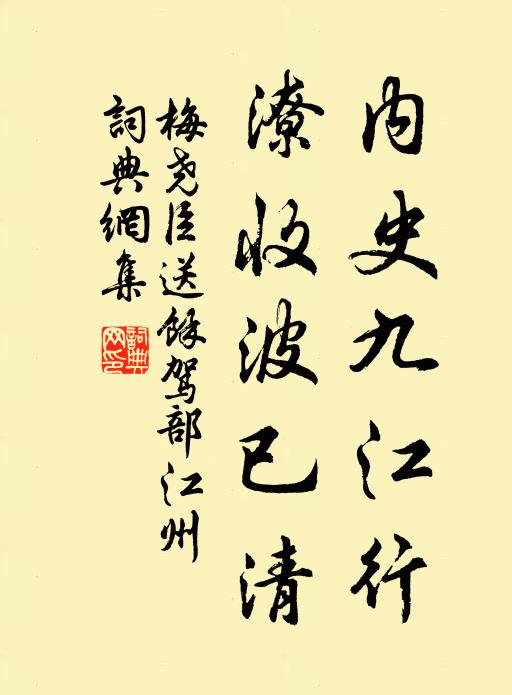 内史九江行
潦收波已清
梅尧臣送馀驾部江州
詞典網集
詞典網印